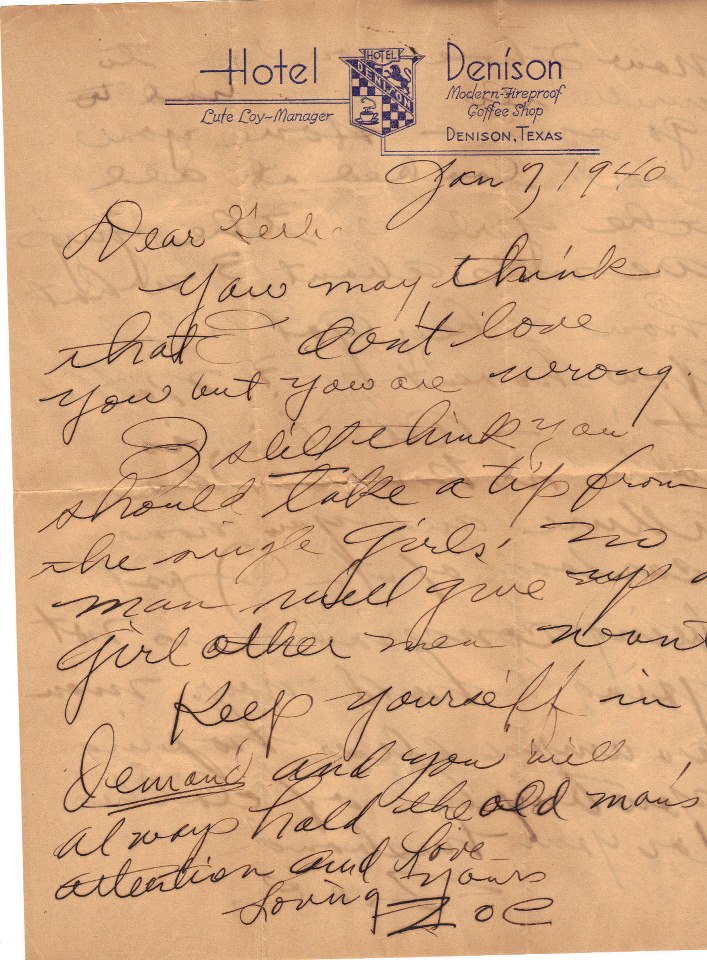 Hotel Denison
HOTEL
DENISON
Lute Loy-Manager
Modern-Fireproof
Coffee Shop
DENISON, TEXAS
Jan 7, 1940
Dear
You may think
that I don't love
you but you are wrong.
I still think you
should take a tip from
the single girls, no
man will give up a
girl other men want
Keep yourself in
Demand and you will
always hold the old man's
attention and love
Loving Yours
Zoe